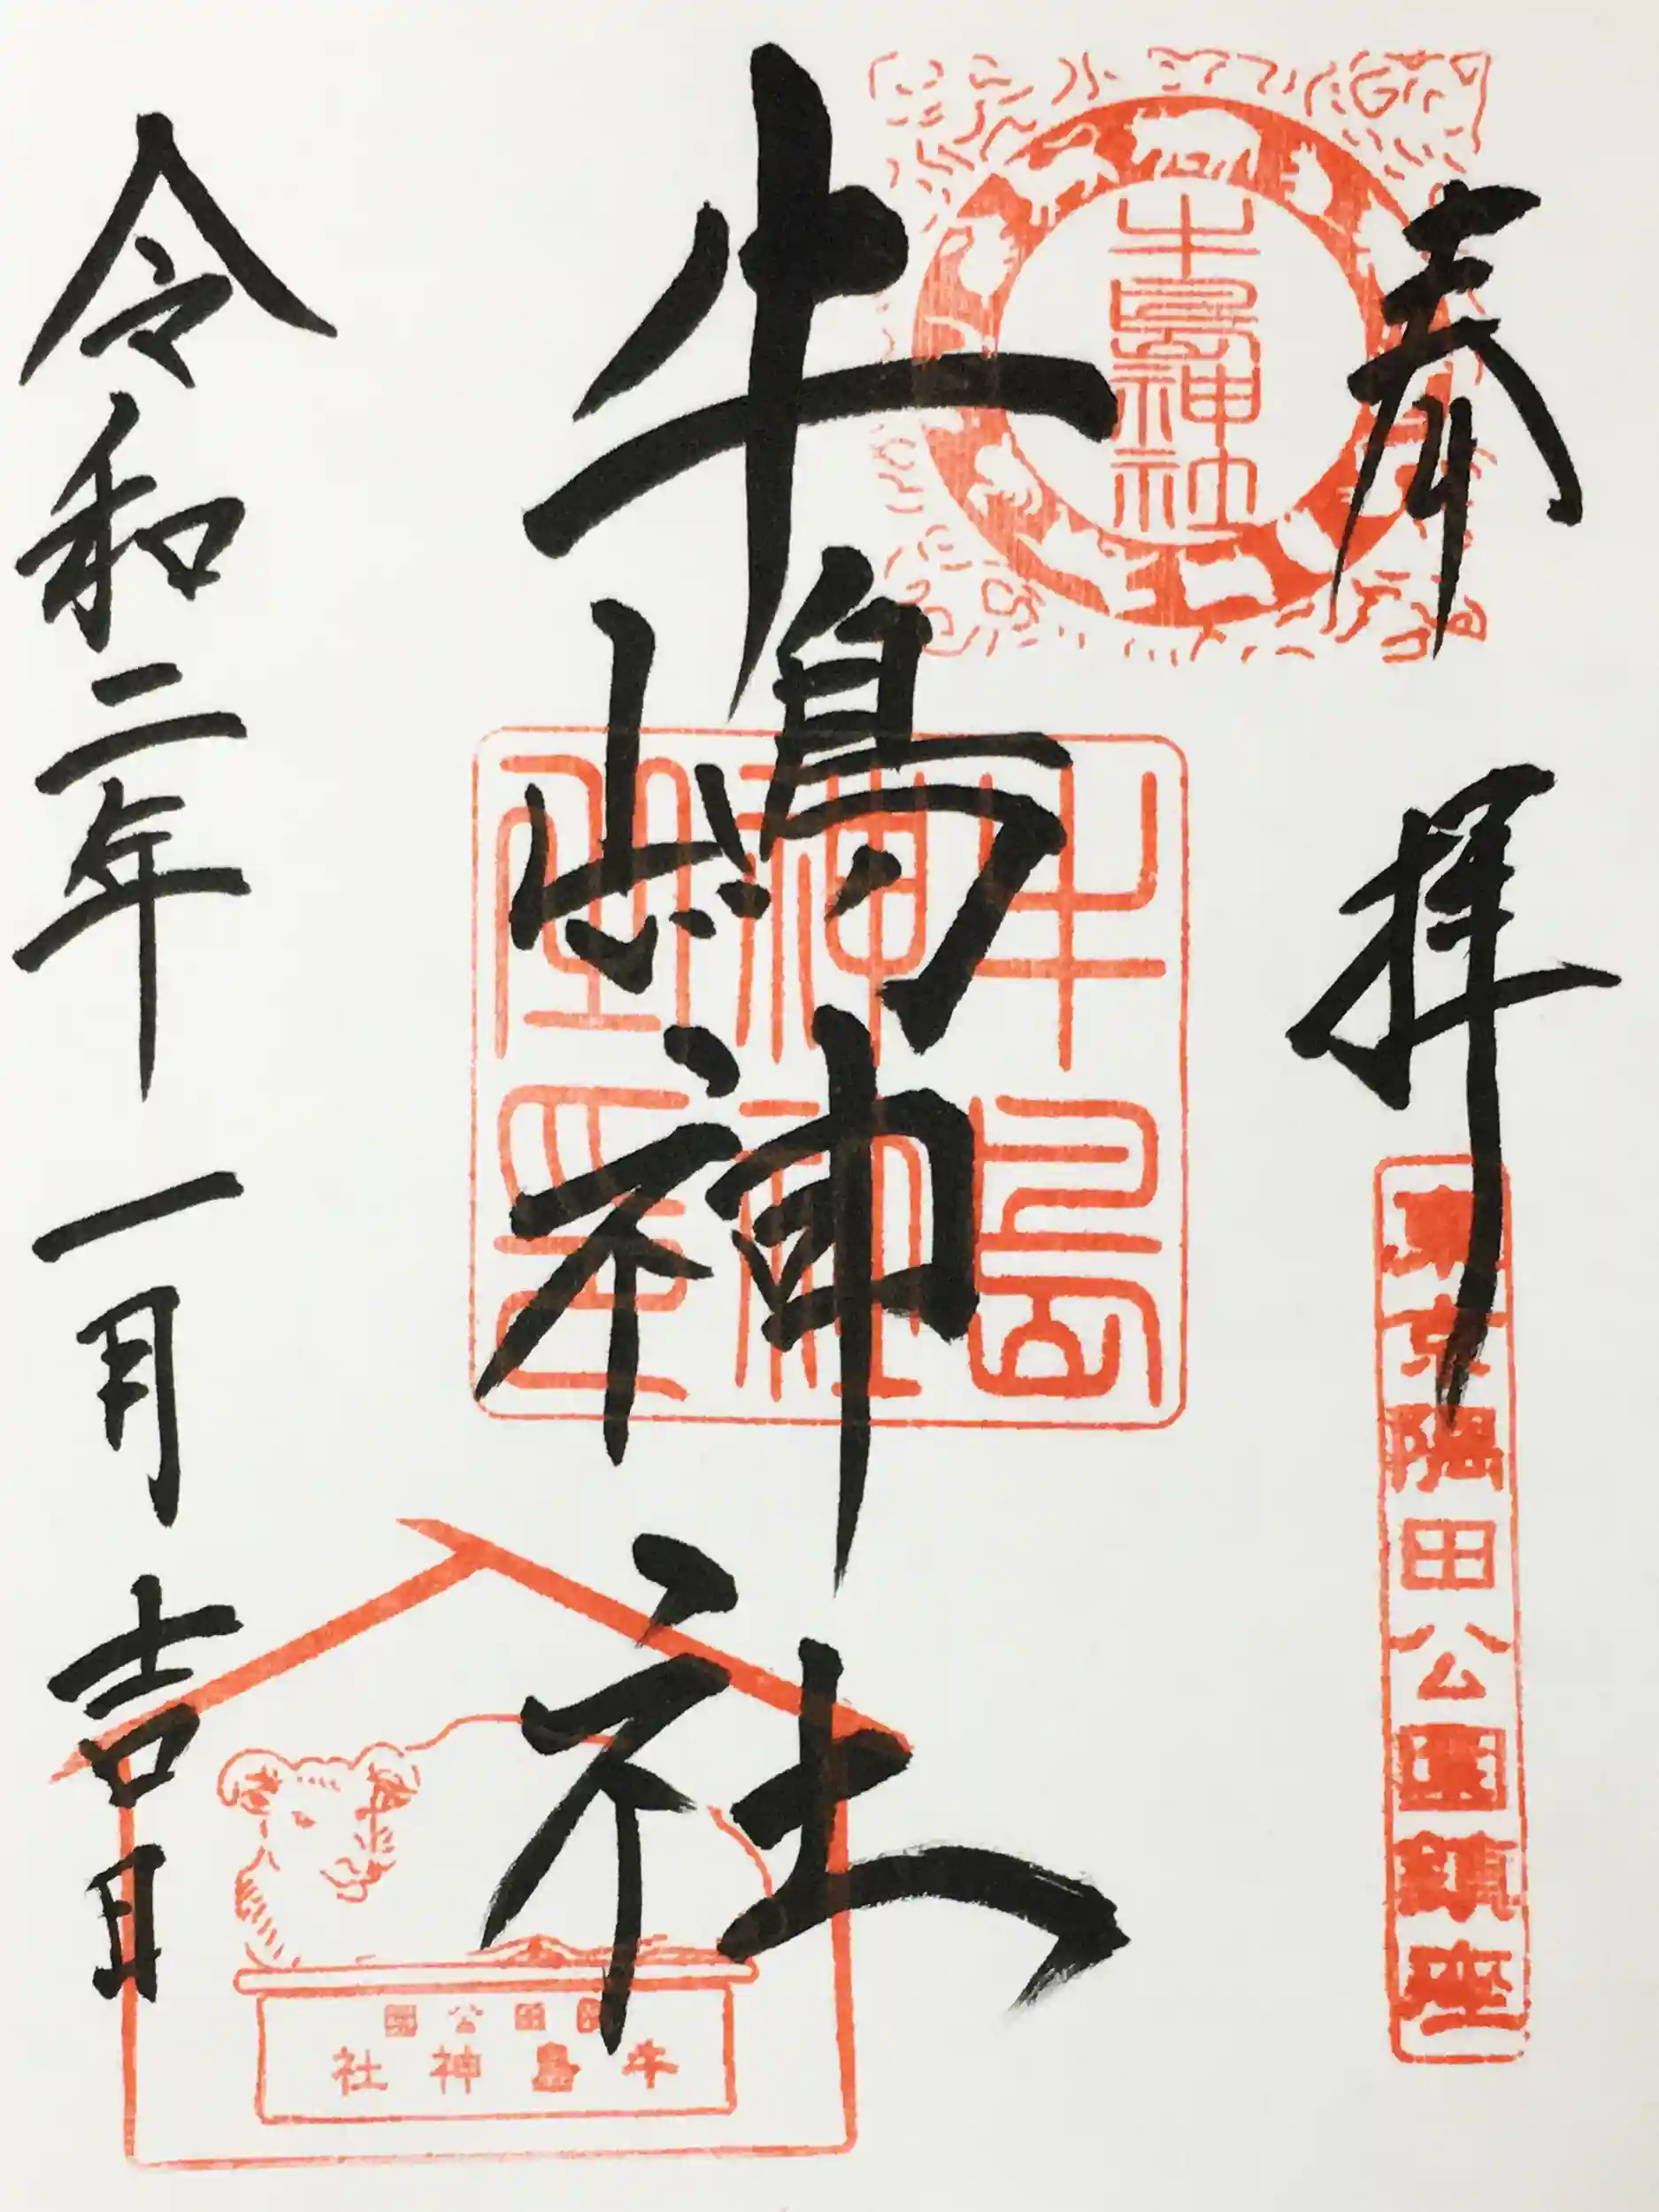 奉拝
東京隅田公園鎮座
牛島神社
牛嶋神社
牛島神社
令和二年一月吉日
隅田公園
牛島神社